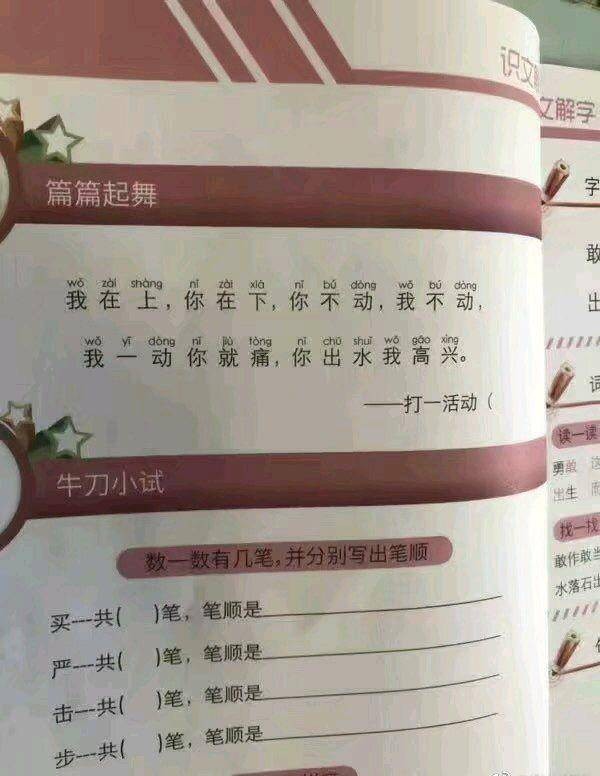 识文
篇篇起舞
wǒ zài shàng nǐ zài xià nǐ bú dòng wǒ bú dòng
我在上,你在下,你不动,我不动,
wǒ yī dòng nǐ jiù tòng nǐ chū shuǐ wǒ gāo xìng
我一动你就痛,你出水我高兴。
——打一活动（
牛刀小试
数一数有几笔,并分别写出笔顺
买---共(  )笔，笔顺是
严---共(  )笔，笔顺是
击---共(  )笔，笔顺是
步---共(  )笔，笔顺是
文解字
字
敢
出
词
读一读
勇敢 这
出生 而
找一找
敢作敢当
水落石出